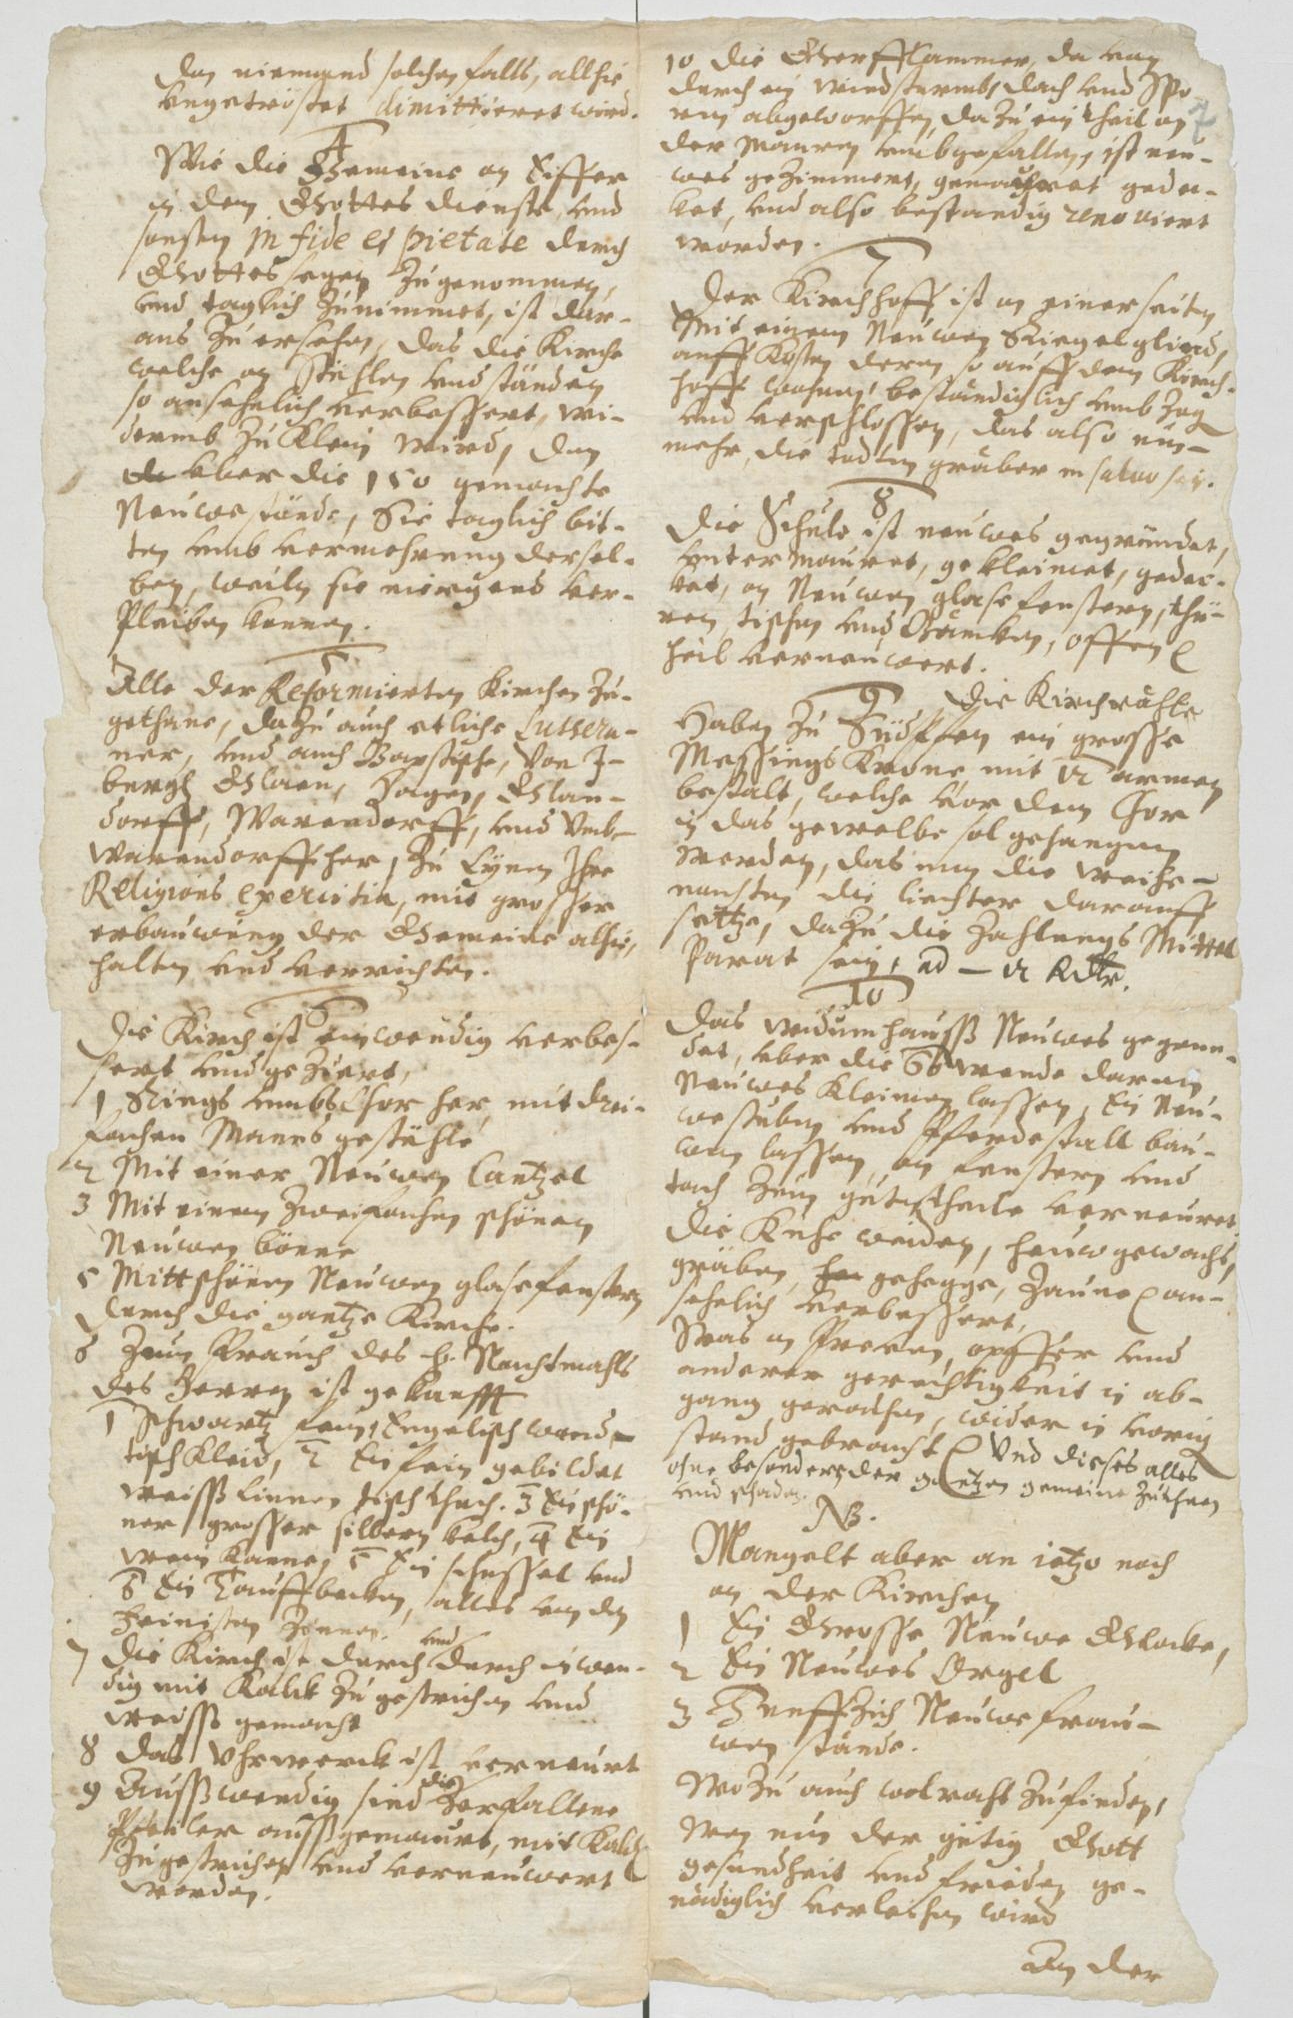 dan niemand solchen falls, allhie
ungetröstet dimittieret wird.
4
Wie die Gemeine an Ziffer
in dem Gottes dienste, und
sonsten in fide et pietate durch
Gottes segen zugenommen,
und taglich zunimmet, ist dar-
aus zu ersehen, das die Kirche
welche an stühlen und ständen
so ansehnlich verbessert, wi-
derumb zu klein wird, dan
uber die 150 gemachte
Neuwe stände, Sie taglich bit-
ten umb vermehrung dersel-
ben, weiln sie niergend ver-
pleiben konnen.
5
Alle der Reformierten Kirchen zu-
gethane, dazu auch etliche Luthera-
ner, und auch Bapstische, von I-
bergh Glaen, Hagen, Glan-
dorff, Warendorff, und umb
Warendorff her, zu Lynen Ihre
Religions exercitia, mit grosser
erbauwung der Gemeine alhie,
halten und verrichten.
6
Die Kirch ist einwendig verbes-
sert und gezieret,
1 Rings umbs Chor her, mit drei-
fachen Mans gestühle
2 Mit einer Neuwen Cantzel
3 Mit einem zweifachen schönen
Neuwen börne
5 Mitt schönen Neuwen glasefenstern
durch die gantze Kirche.
6 Zum Brauch des H. Nachtmahls
des Herren ist gekaufft
1 schwartz fein Engelisch wand-
tisch Kleid, 2 Ein fein gebildet
weiss linnen tisch thuch. 3 Ein schö-
ner grosser silbern kelch, 4 Ein
wein kanne, 5 Ein schussel und
6 Ein Tauffbecken, alles von dem
feinisten Zinnen.
7 die Kirch ist durch und durch inwen-
dig mit Kalck zu gestrichen und
weiss gemacht
8 das Uhrwerck ist verneurt
9 Ausswendig sind die zerfallene
Pfeiler aussgemaurt, mit Kalch
zugestrichen und verneuwert
worden.
10 die Gherffkammer, da von
durch ein windsturmb, dach und Spo
ren abgeworffen, dazu ein theil an
der Mauren umbgefallen, ist neu-
wes gezimmert, gemauret gedec-
ket, und also bestandig renoviert
worden.
7
Der Kirchhoff ist an einer seiten
Mit einem Neuwen Stiegel glind,
auff Kosten deren so auff dem Kirch-
hoff wohnen, beständichlich umbzog
und verschlossen, das also nun-
mehr, die todten gräber in salvo sei.
8
Die Schule ist neuwes gegrundet,
unter mauret, gekleimet, gedec-
ket, an Neuwen glase fenstern, thü-
ren, tischen und Bäncken, offen
heil verneuwert.
9 Die Kirchräthe
Haben zu Südtffen ein grosse
Messings Krone mit 12 armen
bestalt, welche vor dem Chor
in das gewelbe sol gehangen
werden, das man die weihe-
nachten die liechter darauff
setze, dazu die Zahlungs Mittel
Parat sein, ad – 12 Rdlr.
10
Das widumhauss Neuwes gegrun-
det, uber die 66 wende daran
Neuwes kleimen lassen, Ein Neu-
we stuben und Pferdestall bau-
wen lassen, an fenstern und
tach zum gutentheile verneuret,
die Kuhe weiden, heuwgewachs,
gräben, gehegge, Zaune an-
sehelich verbessert,
Was an Frenen, opffer und
anderer gerechtigkeit in ab-
gang gerathen, wider in vorig
stand gebracht Und dieses alles
ohne besonders der gantzen gemeine zuthun
und schaden.
NB.
Mangelt aber an ietzo noch
an der Kirchen
1 Ein Grosse Neuwe Glocke,
2 Ein Neuwes Orgel
3 Funffzich Neuwe frau-
wen stände.
Wozu auch wol rath zufinden,
Wen nun der gütig Gott
gesundheit und frieden ge-
nädiglich verleihen wird
An der